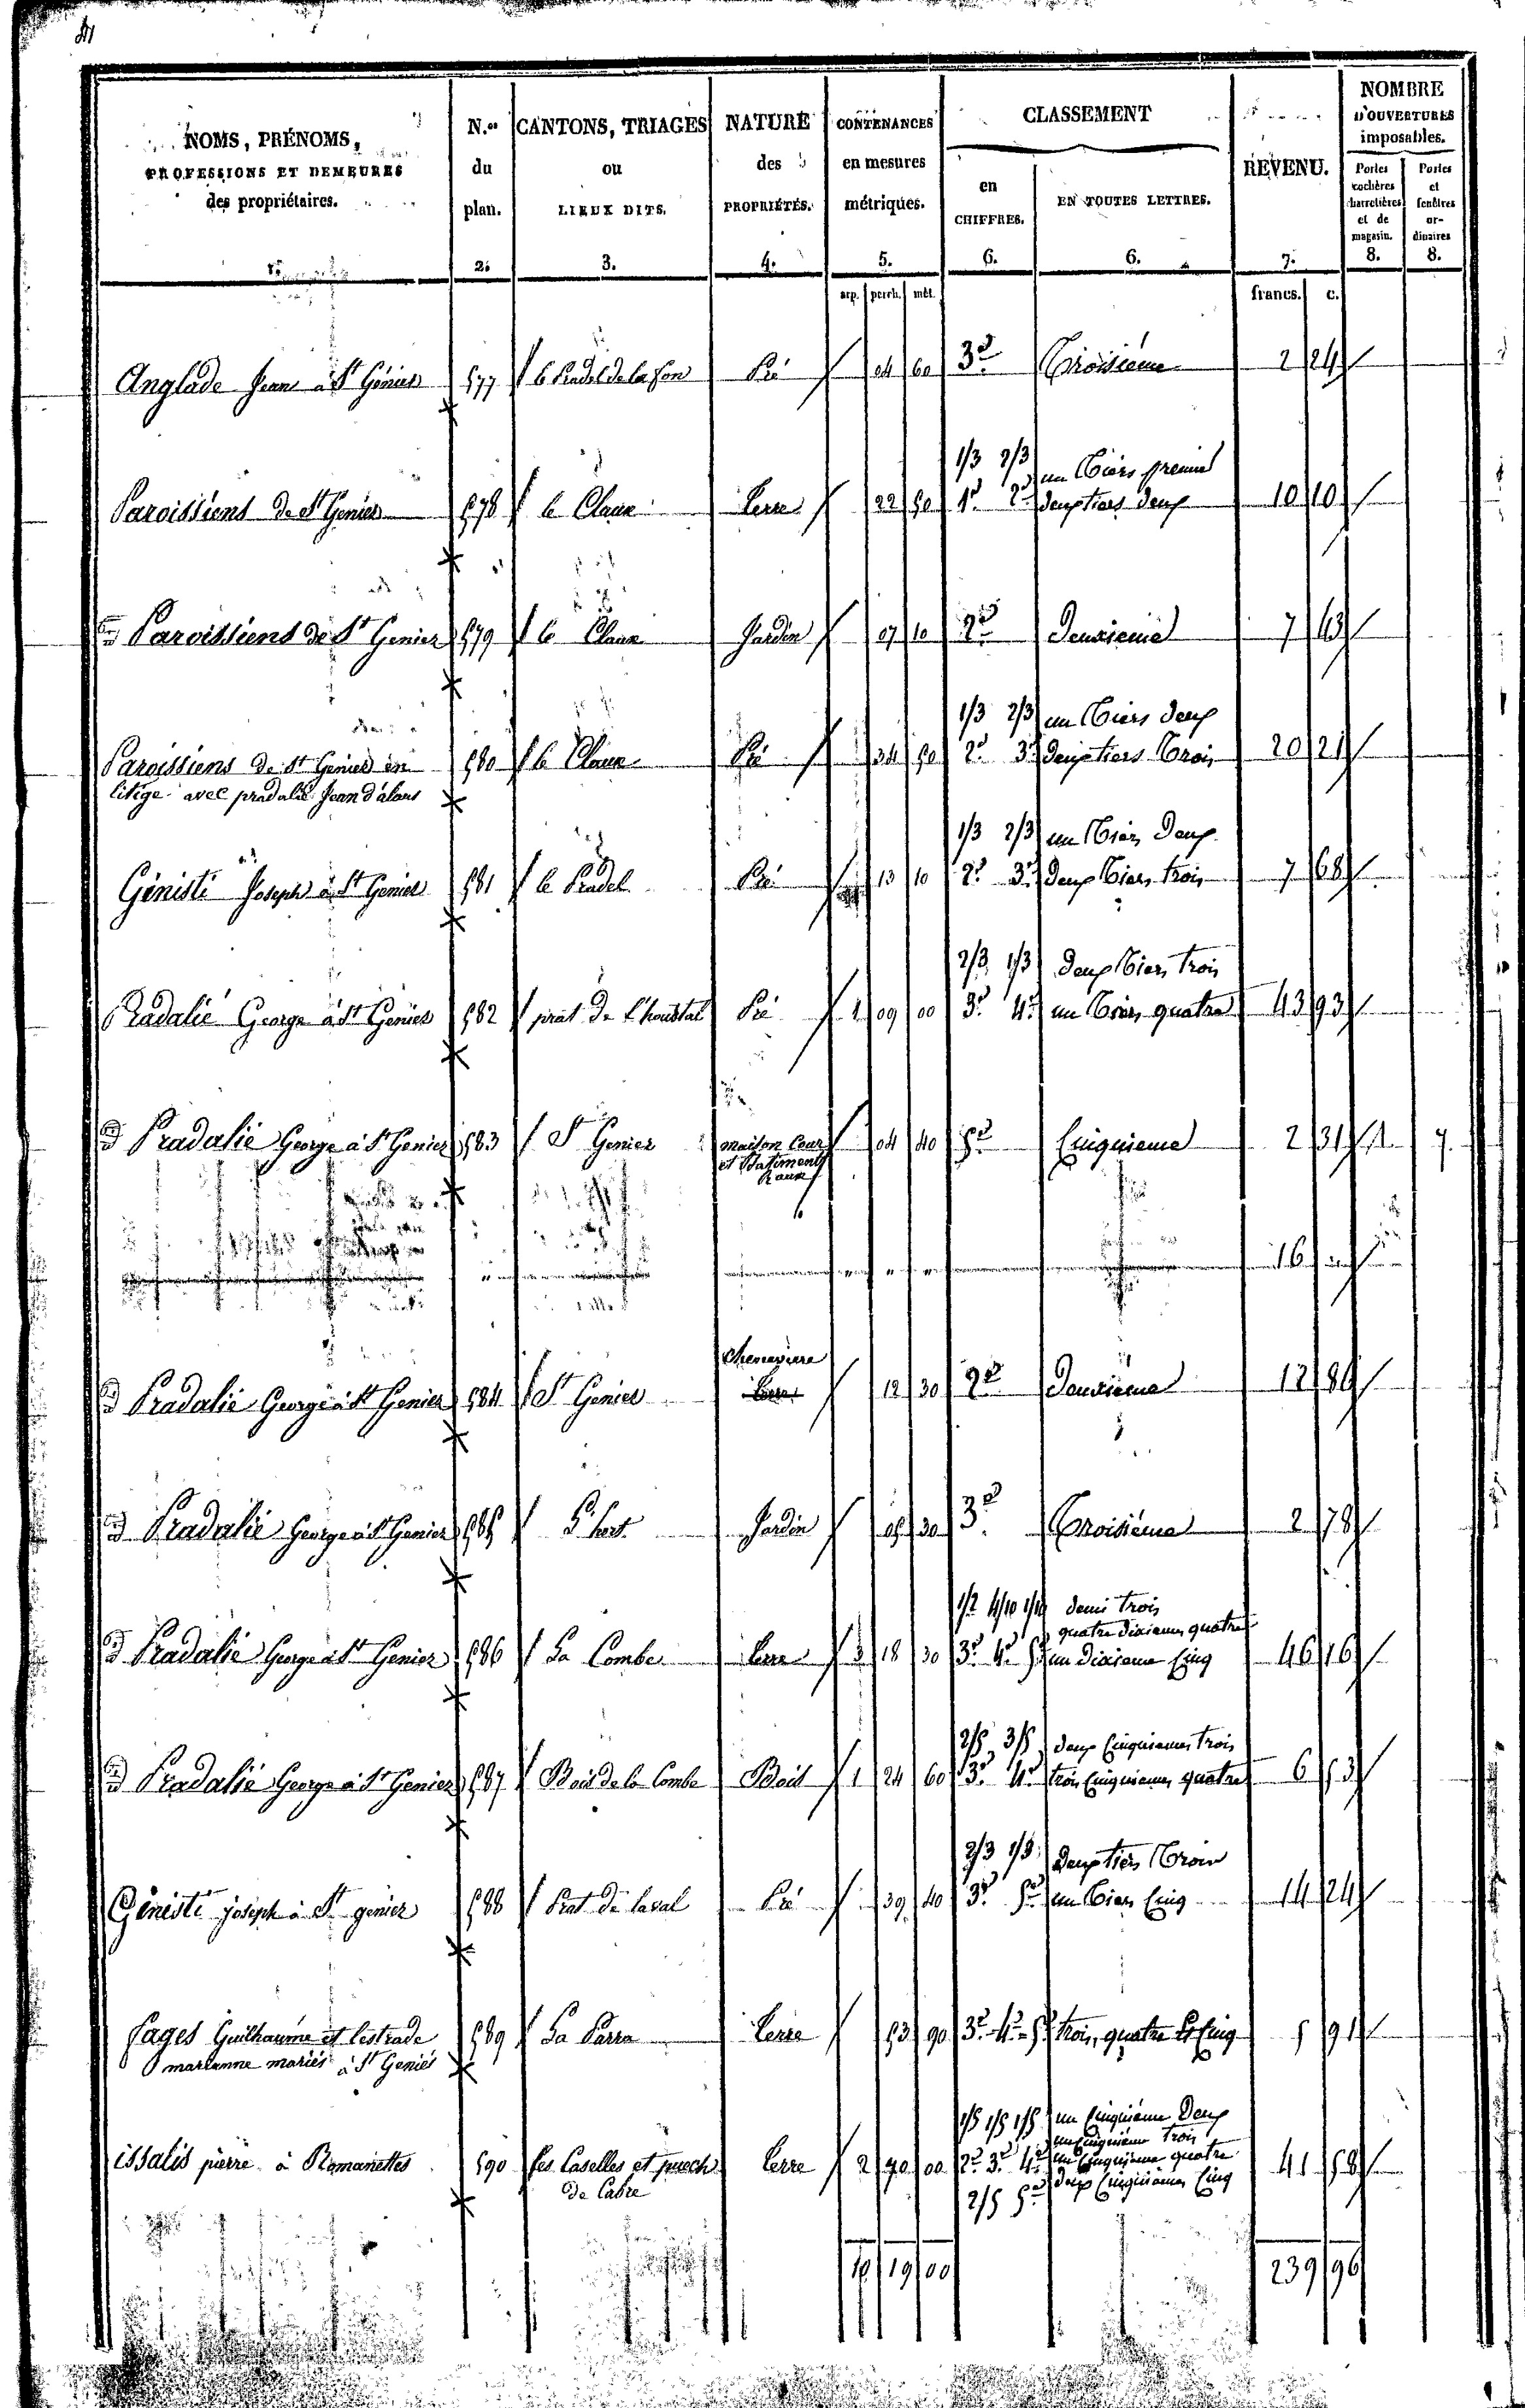 NOMS, PRÉNOMS,
PROFESSIONS ET DEMEURES
des propriétaires.
N.os
du
plan.
CANTONS, TRIAGES
ou
LIEUX DITS.
NATURE
des
PROPRIÉTÉS.
CONTENANCES
en mesures
métriques.
CLASSEMENT
en
CHIFFRES.
EN TOUTES LETTRES.
REVENU.
NOMBRE
D'OUVERTURES
imposables.
Portes
cochères
charretières
et de
magasin.
Portes
et
fenêtres
or-
dinaires
2. 3. 4. 5. 6. 6. 7. 8. 8.
arp. perch. mèt. francs. c.
Anglade Jean à St Géniés 577 le Pradel de la fon Pré 04 60 3e Troisième 2 24
1/3 2/3 un Tiers premier
Paroissiens de St Genier 578 le Claux Terre 22 50 1e 2e deux tiers deux 10 10
Paroissiens de St Genier 579 le Claux Jardin 07 10 2e Deuxième 7 63
1/3 2/3 un Tiers deux
Paroissiens de St Genier en 580 le Claux Pré 34 50 2e 3e deux tiers Trois 20 21
litige avec pradalié Jean d'alaus
1/3 2/3 un Tiers Deux
Géniste Joseph à St Genier 581 le Pradel Pré 13 10 2e 3e deux Tiers trois 7 68
2/3 1/3 deux Tiers trois
Pradalié George à St Geniés 582 prat de l'houstal Pré 1 09 00 3e 4e un Tiers quatre 43 93
Pradalié George à St Genier 583 St Genier maison Cour 04 40 5e Cinquieme 2 31 1 7
et Batiments
Raux
16
Chenaviere
Pradalié George à St Genier 584 St Genier Terre 12 30 2e Deuxième 12 86
Pradalié George à St Genier 585 L'hort Jardin 05 30 3e Troisième 2 78
1/2 4/10 1/10 demi trois
quatre dixiemes quatre
Pradalié George à St Genier 586 La Combe Terre 3 18 30 3e 4e 5e un dixieme Cinq 46 16
2/5 3/5 deux Cinquiemes trois
Pradalié George à St Genier 587 Bois de la Combe Bois 1 24 60 3e 4e trois Cinquiemes quatre 6 53
2/3 1/3 Deux tiers Trois
Géniste joseph à St genier 588 Prat de laval Pré 39 40 3e 5e un Tiers Cinq 14 24
fages Guilhaume et lestrade 589 La Parra Terre 53 90 3e 4e 5e trois, quatre et Cinq 5 91
marianne mariés à St Geniés
1/5 1/5 1/5 un Cinquième Deux
un Cinquième trois
issalis pierre à Romanettes 590 les Caselles et puech Terre 2 70 00 2e 3e 4e un Cinquieme quatre 41 58
de Cabre 2/5 5e deux Cinquièmes Cinq
10 19 00 239 96